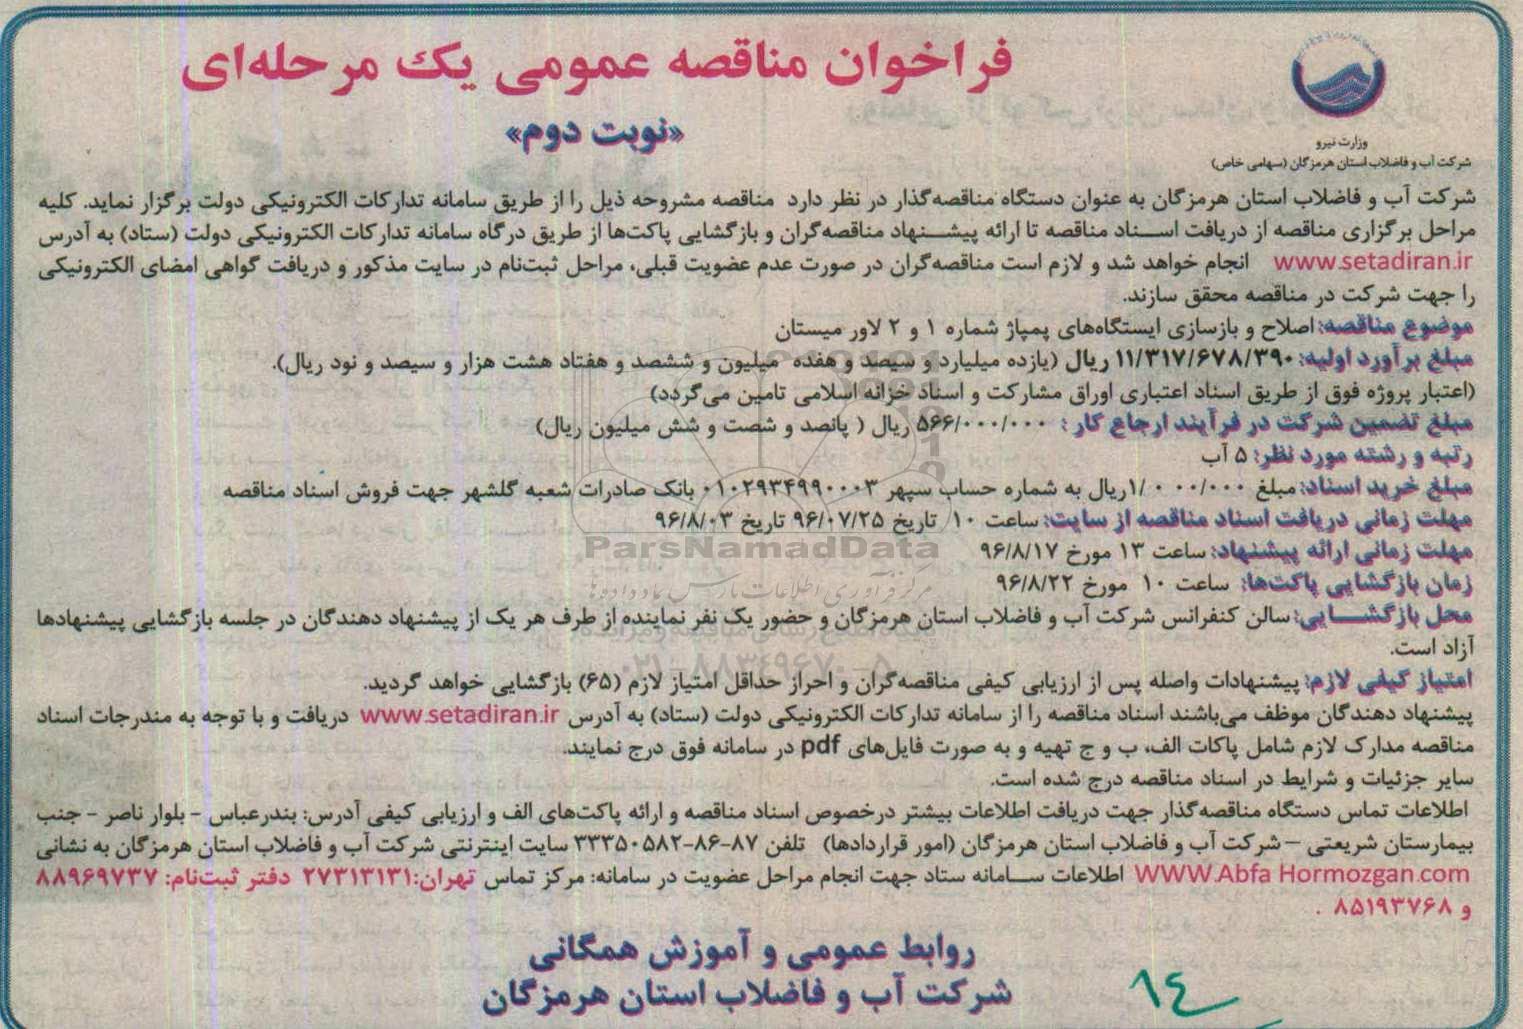 فراخوان مناقصه عمومی یک مرحله‌ای
«نوبت دوم»
وزارت نیرو
شرکت آب و فاضلاب استان هرمزگان (سهامی خاص)
شرکت آب و فاضلاب استان هرمزگان به عنوان دستگاه مناقصه‌گذار در نظر دارد مناقصه مشروحه ذیل را از طریق سامانه تدارکات الکترونیکی دولت برگزار نماید. کلیه
مراحل برگزاری مناقصه از دریافت اسـناد مناقصه تا ارائه پیشـنهاد مناقصه‌گران و بازگشایی پاکت‌ها از طریق درگاه سامانه تدارکات الکترونیکی دولت (ستاد) به آدرس
www.setadiran.ir انجام خواهد شد و لازم است مناقصه‌گران در صورت عدم عضویت قبلی، مراحل ثبت‌نام در سایت مذکور و دریافت گواهی امضای الکترونیکی
را جهت شرکت در مناقصه محقق سازند.
موضوع مناقصه: اصلاح و بازسازی ایستگاه‌های پمپاژ شماره ۱ و ۲ لاور میستان
مبلغ برآورد اولیه: ۱۱/۳۱۷/۶۷۸/۳۹۰ ریال (یازده میلیارد و سیصد و هفده میلیون و ششصد و هفتاد هشت هزار و سیصد و نود ریال).
(اعتبار پروژه فوق از طریق اسناد اعتباری اوراق مشارکت و اسناد خزانه اسلامی تامین می‌گردد)
مبلغ تضمین شرکت در فرآیند ارجاع کار: ۵۶۶/۰۰۰/۰۰۰ ریال ( پانصد و شصت و شش میلیون ریال)
رتبه و رشته مورد نظر: ۵ آب
مبلغ خرید اسناد: مبلغ ۱/۰۰۰/۰۰۰ریال به شماره حساب سپهر ۰۱۰۲۹۳۴۹۹۰۰۰۳ بانک صادرات شعبه گلشهر جهت فروش اسناد مناقصه
مهلت زمانی دریافت اسناد مناقصه از سایت: ساعت ۱۰ تاریخ ۹۶/۰۷/۲۵ تاریخ ۹۶/۸/۰۳
مهلت زمانی ارائه پیشنهاد: ساعت ۱۳ مورخ ۹۶/۸/۱۷
زمان بازگشایی پاکت‌ها: ساعت ۱۰ مورخ ۹۶/۸/۲۲
محل بازگشـایی: سالن کنفرانس شرکت آب و فاضلاب استان هرمزگان و حضور یک نفر نماینده از طرف هر یک از پیشنهاد دهندگان در جلسه بازگشایی پیشنهادها
آزاد است.
امتیاز کیفی لازم: پیشنهادات واصله پس از ارزیابی کیفی مناقصه‌گران و احراز حداقل امتیاز لازم (۶۵) بازگشایی خواهد گردید.
پیشنهاد دهندگان موظف می‌باشند اسناد مناقصه را از سامانه تدارکات الکترونیکی دولت (ستاد) به آدرس www.setadiran.ir دریافت و با توجه به مندرجات اسناد
مناقصه مدارک لازم شامل پاکات الف، ب و ج تهیه و به صورت فایل‌های pdf در سامانه فوق درج نمایند.
سایر جزئیات و شرایط در اسناد مناقصه درج شده است.
اطلاعات تماس دستگاه مناقصه‌گذار جهت دریافت اطلاعات بیشتر درخصوص اسناد مناقصه و ارائه پاکت‌های الف و ارزیابی کیفی آدرس: بندرعباس - بلوار ناصر - جنب
بیمارستان شریعتی – شرکت آب و فاضلاب استان هرمزگان (امور قراردادها) تلفن ۸۷-۸۶-۳۳۳۵۰۵۸۲ سایت اینترنتی شرکت آب و فاضلاب استان هرمزگان به نشانی
WWW.Abfa Hormozgan.com اطلاعات سـامانه ستاد جهت انجام مراحل عضویت در سامانه: مرکز تماس تهران:۲۷۳۱۳۱۳۱ دفتر ثبت‌نام: ۸۸۹۶۹۷۳۷
و ۸۵۱۹۳۷۶۸ .
روابط عمومی و آموزش همگانی
شرکت آب و فاضلاب استان هرمزگان
۱۴
ParsNamadData
مرکز فرآوری اطلاعات پارس نماد داده‌ها
۰۲۱-۸۸۳۴۹۶۷۰-۵